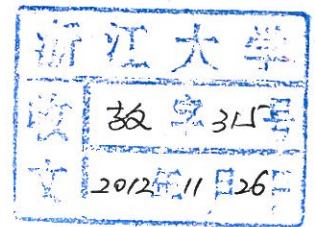 浙江大学
收文
教字315号
2012年11月26日